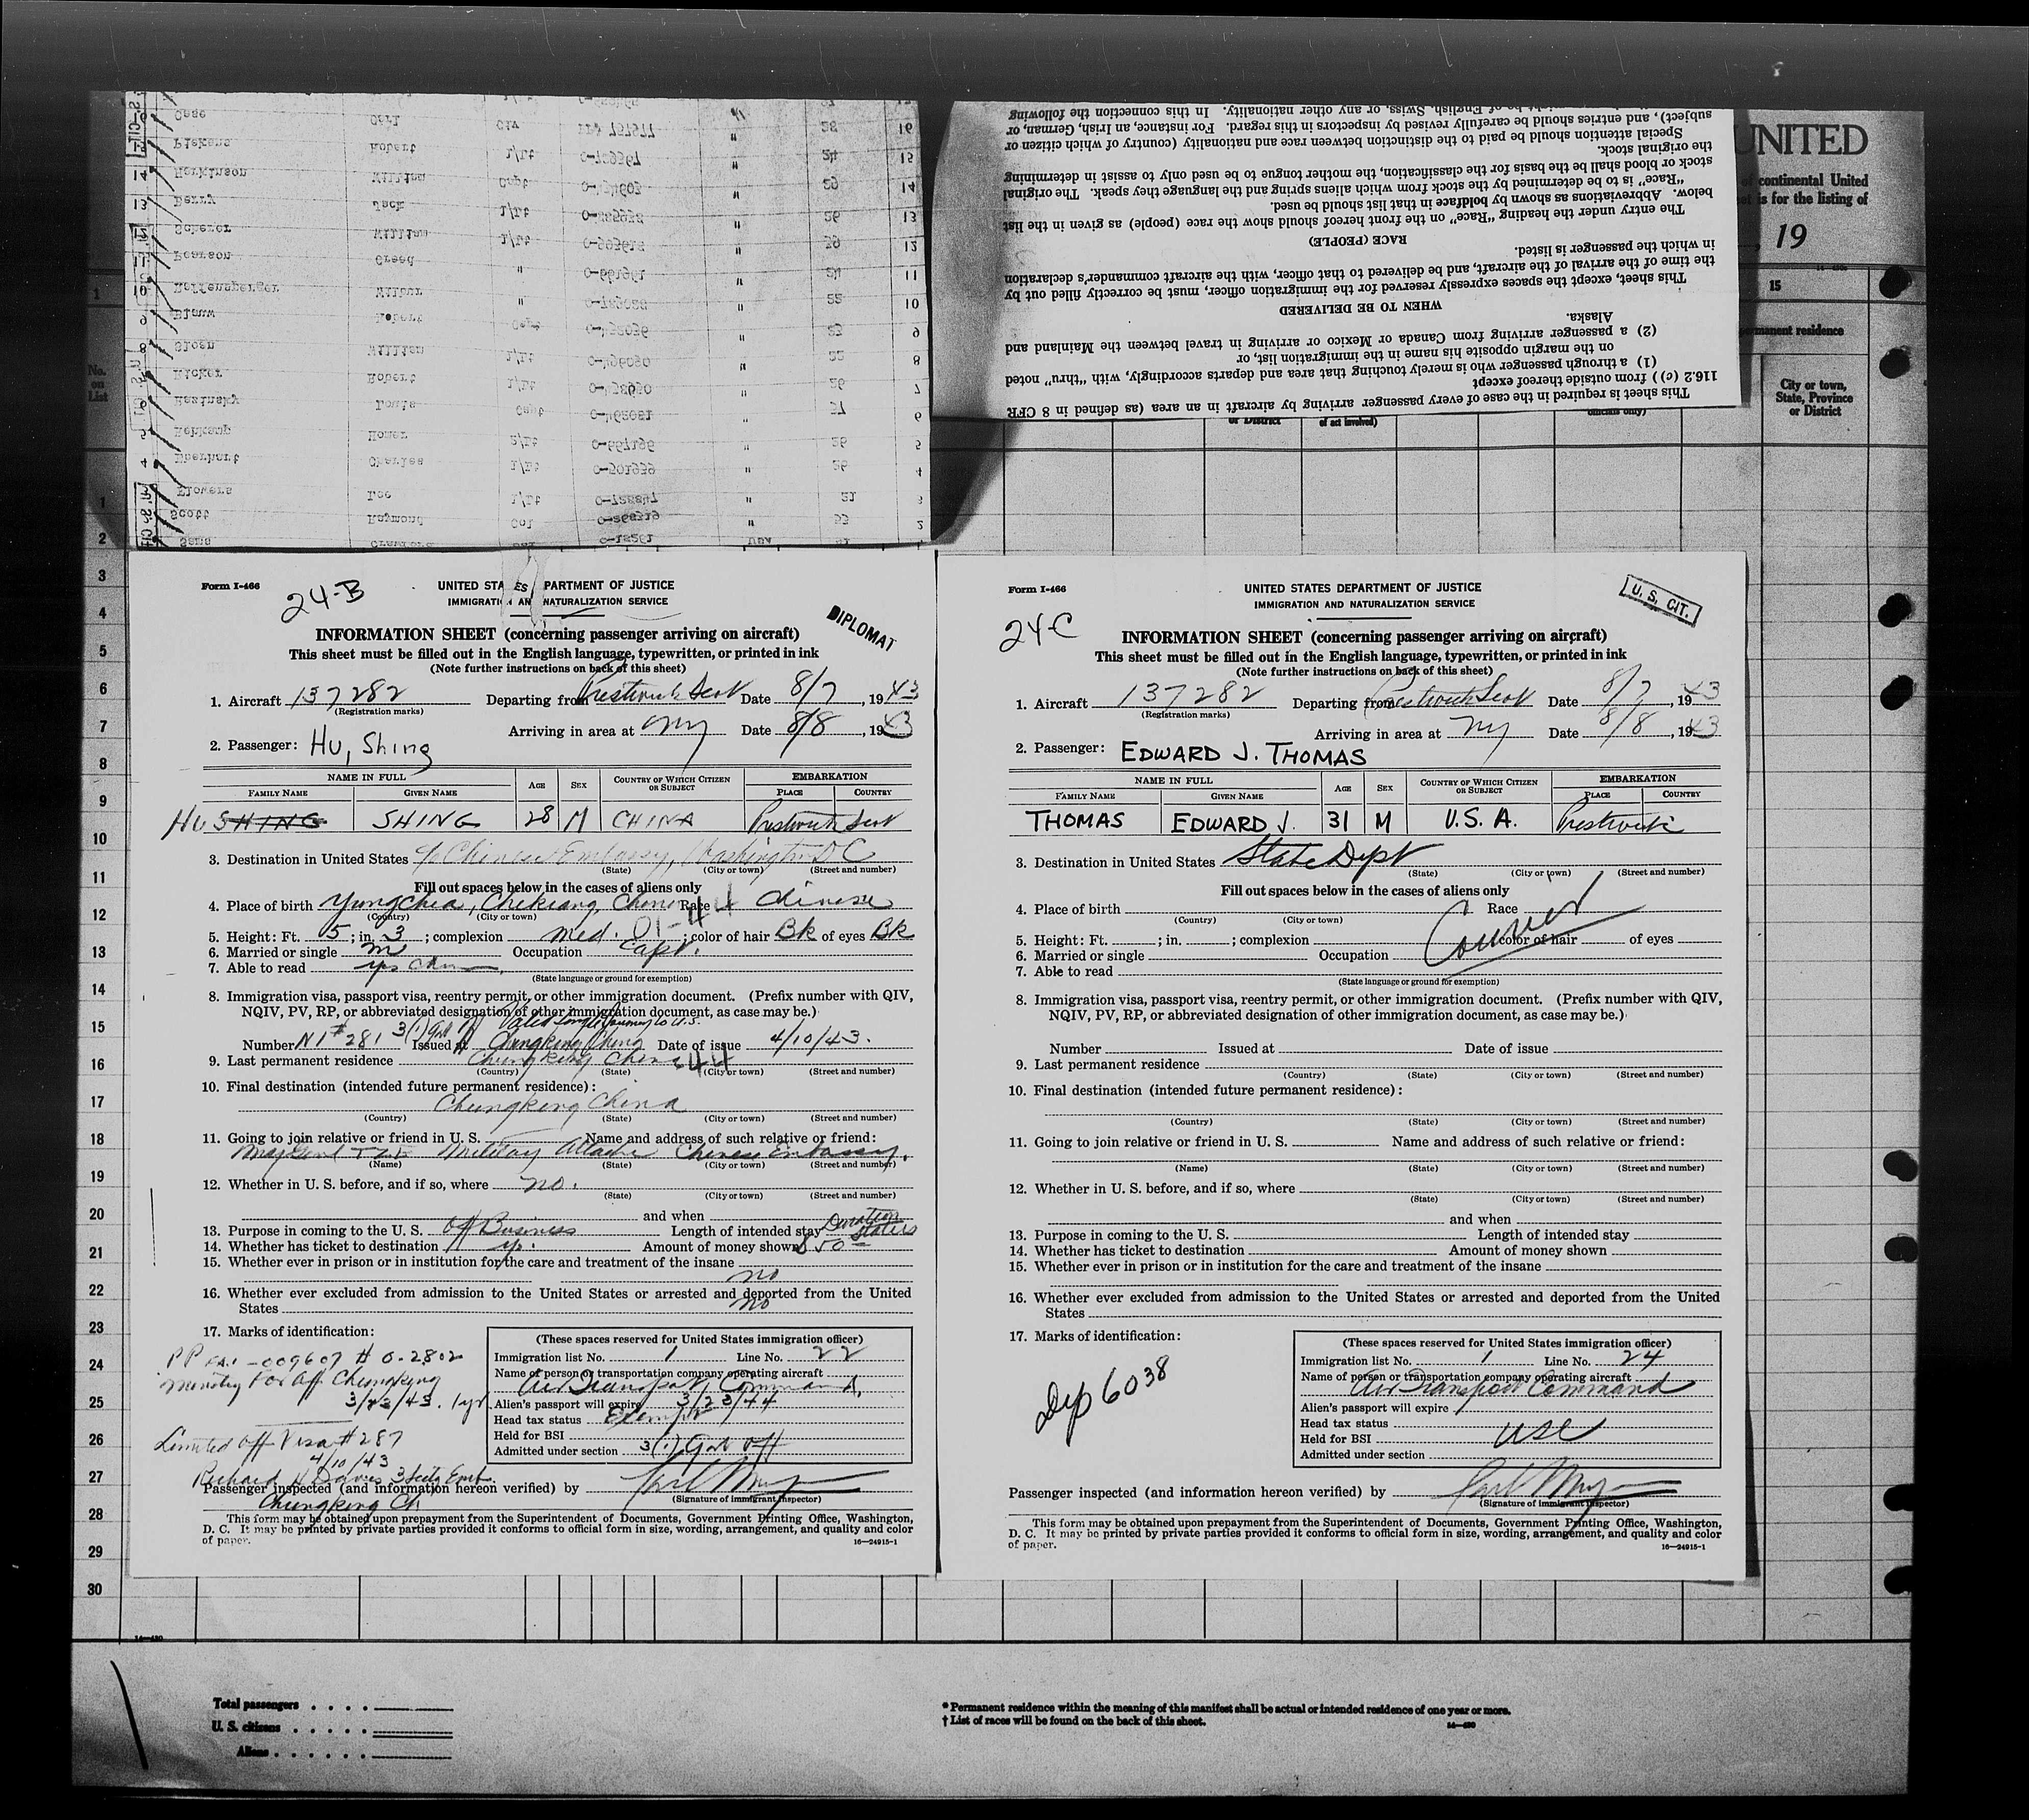 UNITED
of continental United
is for the listing of
, 19
15
permanent residence
City or town,
State, Province
or District
No.
on
List
This sheet is required in the case of every passenger arriving by aircraft in an area (as defined in 8 CFR
116.2 (c)) from outside thereof except
(1) a through passenger who is merely touching that area and departs accordingly, with “thru” noted
on the margin opposite his name in the immigration list, or
(2) a passenger arriving from Canada or Mexico or arriving in travel between the Mainland and
Alaska.
WHEN TO BE DELIVERED
This sheet, except the spaces expressly reserved for the immigration officer, must be correctly filled out by
the time of the arrival of the aircraft, and be delivered to that officer, with the aircraft commander's declaration
in which the passenger is listed.
RACE (PEOPLE)
The entry under the heading “Race” on the front hereof should show the race (people) as given in the list
below. Abbreviations as shown by boldface in that list should be used.
“Race” is to be determined by the stock from which aliens spring and the language they speak. The original
stock or blood shall be the basis for the classification, the mother tongue to be used only to assist in determining
the original stock.
Special attention should be paid to the distinction between race and nationality (country of which citizen or
subject), and entries should be carefully revised by inspectors in this regard. For instance, an Irish, German, or
of English, Swiss, or any other nationality. In this connection the following
Scott Raymond Col 53 2
Flowers Lee 1/Lt 21 3
Eberhart Charles 1/Lt 26 4
Homer 2/Lt 26 5
Louis Capt 6
Robert 1/Lt 26 7
Sloan William 1/Lt 22 8
Robert Capt 9
Wilbur 22 10
Pearson Creed 24 11
Scherer William 1/Lt 12
Berry Jack 1/Lt 26 13
William Capt 29 14
Robert 1/Lt 24 15
Case Carl Civ 28 16
Form I-466
24-B
UNITED STATES DEPARTMENT OF JUSTICE
IMMIGRATION AND NATURALIZATION SERVICE
DIPLOMAT
INFORMATION SHEET (concerning passenger arriving on aircraft)
This sheet must be filled out in the English language, typewritten, or printed in ink
(Note further instructions on back of this sheet)
1. Aircraft 137282 Departing from Prestwick Scot Date 8/7, 1943
(Registration marks)
Arriving in area at NY Date 8/8, 1943
2. Passenger: Hu, Shing
NAME IN FULL AGE SEX COUNTRY OF WHICH CITIZEN OR SUBJECT EMBARKATION
FAMILY NAME GIVEN NAME PLACE COUNTRY
HU SHING SHING 28 M CHINA Prestwick Scot
3. Destination in United States c/o Chinese Embassy, Washington DC
(State) (City or town) (Street and number)
Fill out spaces below in the cases of aliens only
4. Place of birth Yungchia, Chekiang, China Race Chinese
(Country) (City or town) 01-44
5. Height: Ft. 5; in. 3; complexion med. ; color of hair Bk of eyes Bk
6. Married or single m Occupation Capt.
7. Able to read yes Chin
(State language or ground for exemption)
8. Immigration visa, passport visa, reentry permit, or other immigration document. (Prefix number with QIV,
NQIV, PV, RP, or abbreviated designation of other immigration document, as case may be.)
3(1) Govt Off Valid Single Journey to U.S.
Number NI #281 Issued at Chungking China Date of issue 4/10/43.
9. Last permanent residence Chungking China 44
(Country) (State) (City or town) (Street and number)
10. Final destination (intended future permanent residence):
Chungking China
(Country) (State) (City or town) (Street and number)
11. Going to join relative or friend in U. S. Name and address of such relative or friend:
Military Attache Chinese Embassy.
(Name) (State) (City or town) (Street and number)
12. Whether in U. S. before, and if so, where no.
(State) (City or town) (Street and number)
and when
13. Purpose in coming to the U. S. Off Business Length of intended stay Duration status
14. Whether has ticket to destination yes. Amount of money shown $50
15. Whether ever in prison or in institution for the care and treatment of the insane
no
16. Whether ever excluded from admission to the United States or arrested and deported from the United
States no
17. Marks of identification:
PP -009607 # 0-2802
Ministry For Aff Chungking
3/23/43. 1 yr
Limited Off Visa #287
4/10/43
Richard Davis 3 Secty Emb.
Chungking Ch
(These spaces reserved for United States immigration officer)
Immigration list No. 1 Line No. 22
Name of person or transportation company operating aircraft
Air Transport Command,
Alien's passport will expire 3/23/44
Head tax status Exempt
Held for BSI
Admitted under section 3(1) Gov Off
Passenger inspected (and information hereon verified) by
(Signature of immigrant inspector)
This form may be obtained upon prepayment from the Superintendent of Documents, Government Printing Office, Washington,
D. C. It may be printed by private parties provided it conforms to official form in size, wording, arrangement, and quality and color
of paper.
16—24915-1
Form I-466
24-C
UNITED STATES DEPARTMENT OF JUSTICE
IMMIGRATION AND NATURALIZATION SERVICE
U. S. CIT.
INFORMATION SHEET (concerning passenger arriving on aircraft)
This sheet must be filled out in the English language, typewritten, or printed in ink
(Note further instructions on back of this sheet)
1. Aircraft 137282 Departing from Prestwick Scot Date 8/7, 1943
(Registration marks)
Arriving in area at NY Date 8/8, 1943
2. Passenger: EDWARD J. THOMAS
NAME IN FULL AGE SEX COUNTRY OF WHICH CITIZEN OR SUBJECT EMBARKATION
FAMILY NAME GIVEN NAME PLACE COUNTRY
THOMAS EDWARD J. 31 M U.S.A. Prestwick
3. Destination in United States State Dept
(State) (City or town) (Street and number)
Fill out spaces below in the cases of aliens only
4. Place of birth Race
(Country) (City or town)
Courier
5. Height: Ft. ; in. ; complexion ; color of hair of eyes
6. Married or single Occupation
7. Able to read
(State language or ground for exemption)
8. Immigration visa, passport visa, reentry permit, or other immigration document. (Prefix number with QIV,
NQIV, PV, RP, or abbreviated designation of other immigration document, as case may be.)
Number Issued at Date of issue
9. Last permanent residence
(Country) (State) (City or town) (Street and number)
10. Final destination (intended future permanent residence):
(Country) (State) (City or town) (Street and number)
11. Going to join relative or friend in U. S. Name and address of such relative or friend:
(Name) (State) (City or town) (Street and number)
12. Whether in U. S. before, and if so, where
(State) (City or town) (Street and number)
and when
13. Purpose in coming to the U. S. Length of intended stay
14. Whether has ticket to destination Amount of money shown
15. Whether ever in prison or in institution for the care and treatment of the insane
16. Whether ever excluded from admission to the United States or arrested and deported from the United
States
17. Marks of identification:
Dip 6038
(These spaces reserved for United States immigration officer)
Immigration list No. 1 Line No. 24
Name of person or transportation company operating aircraft
Air Transport Command
Alien's passport will expire
Head tax status
Held for BSI USC
Admitted under section
Passenger inspected (and information hereon verified) by
(Signature of immigrant inspector)
This form may be obtained upon prepayment from the Superintendent of Documents, Government Printing Office, Washington,
D. C. It may be printed by private parties provided it conforms to official form in size, wording, arrangement, and quality and color
of paper.
16—24915-1
1
2
3
4
5
6
7
8
9
10
11
12
13
14
15
16
17
18
19
20
21
22
23
24
25
26
27
28
29
30
Total passengers
U. S. citizens
Aliens
* Permanent residence within the meaning of this manifest shall be actual or intended residence of one year or more.
† List of races will be found on the back of this sheet.